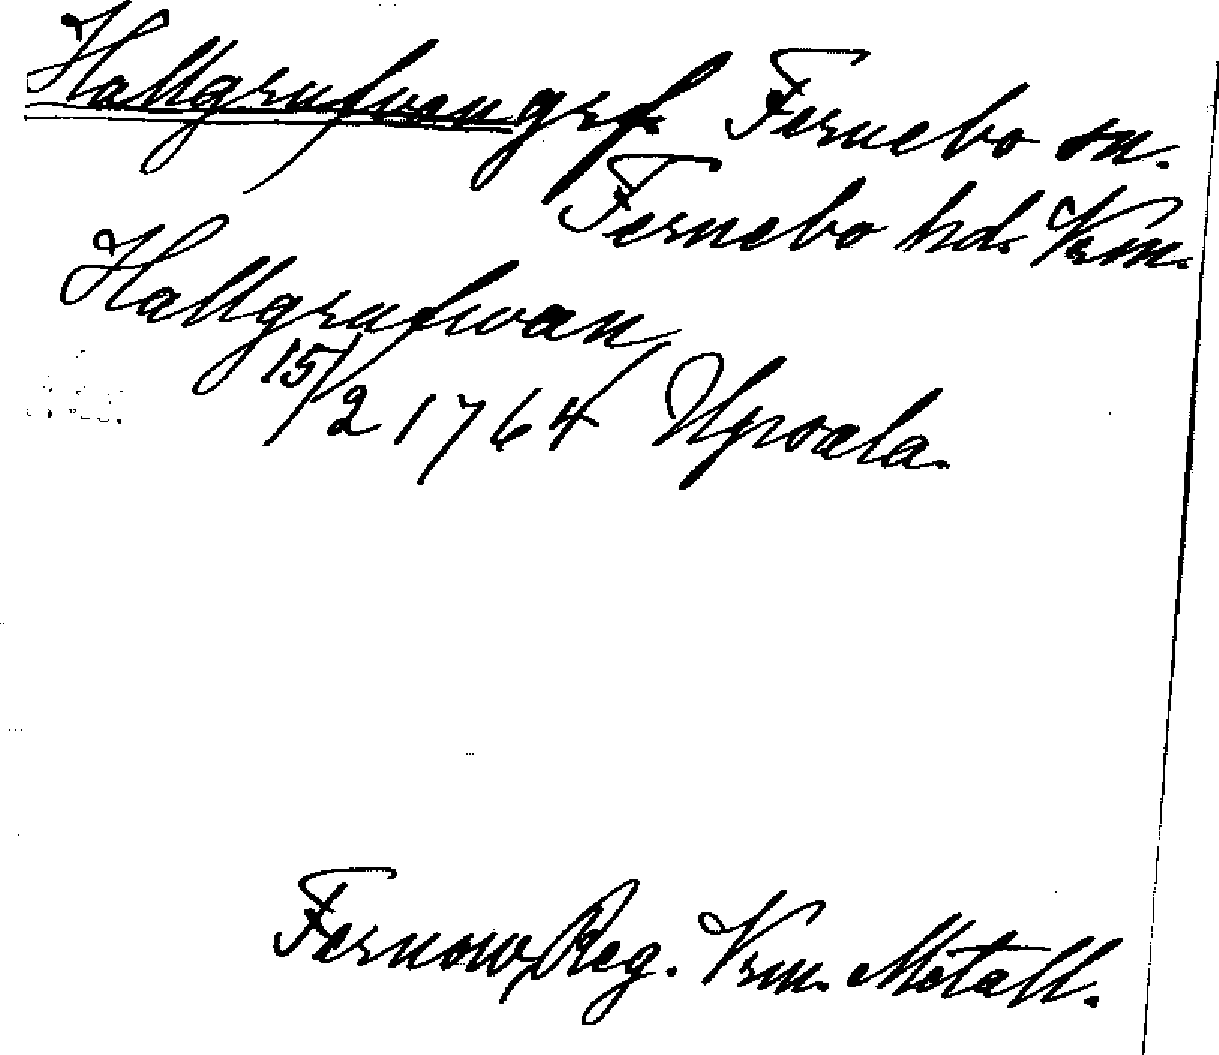 Hallgrufvan grf. Fernebo sn.
Fernebo hd. Vrm.
Hallgrufwan,
15/2 1764 Upsala.
Fernow, Reg. Vrm. Metall.